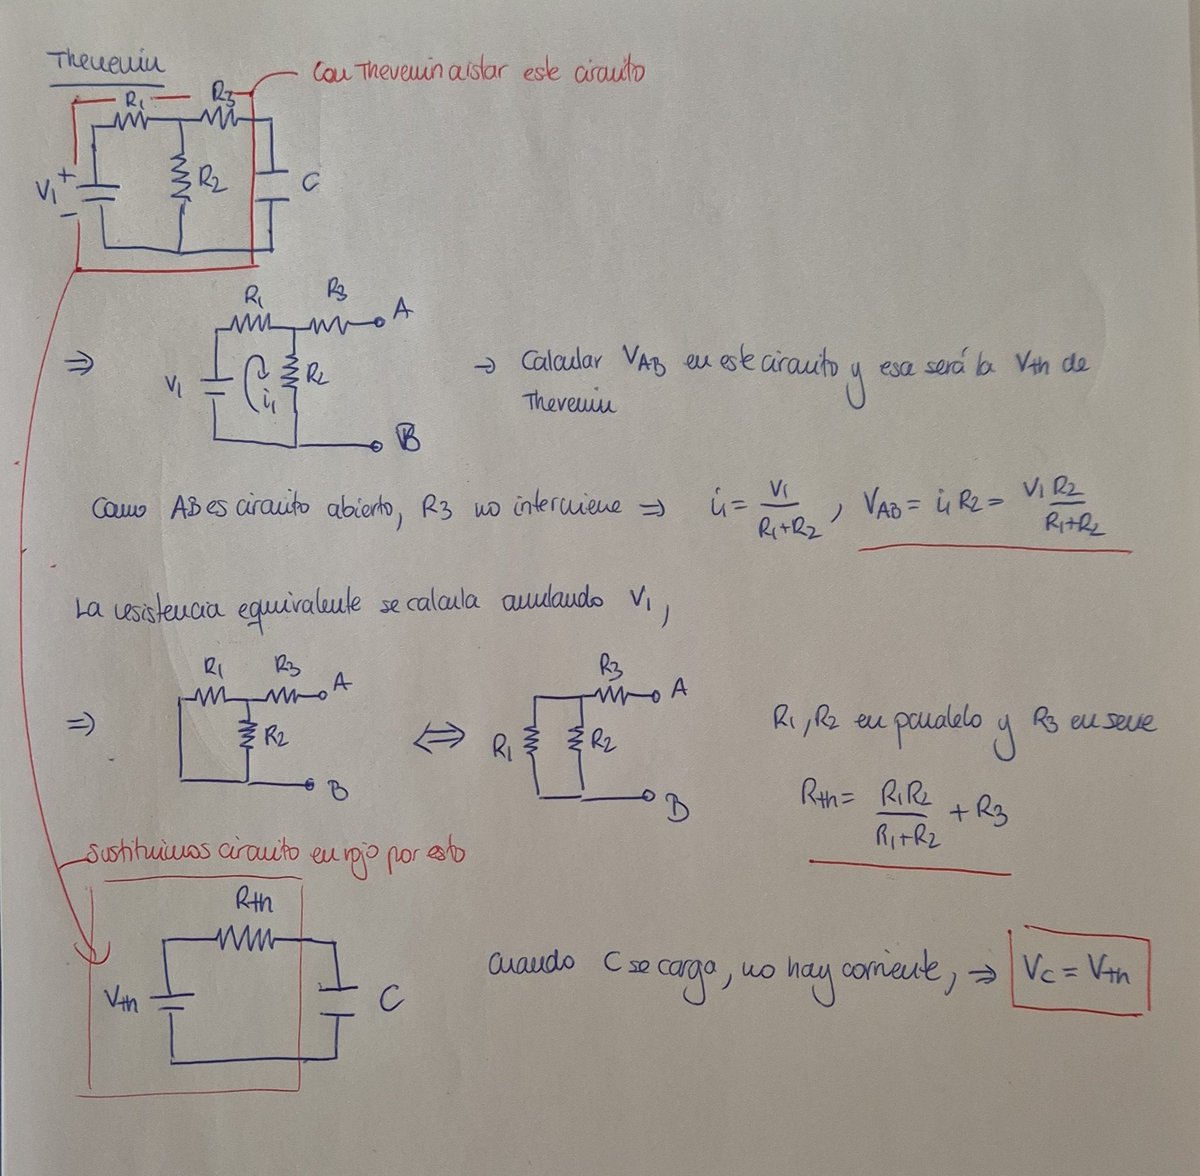 Thevenin
Con Thevenin aislar este circuito
R1
R3
V1
+
-
R2
C
R1
R3
A
⇒
V1
i1
R2
B
→ Calcular VAB en este circuito y esa será la Vth de
Thevenin
Como AB es circuito abierto, R3 no interviene ⇒ i1 = V1/(R1+R2), VAB = i1 R2 = V1 R2/(R1+R2)
La resistencia equivalente se calcula anulando V1,
R1
R3
A
⇒
R2
B
⇔
R3
A
R1
R2
B
R1, R2 en paralelo y R3 en serie
Rth = R1R2/(R1+R2) + R3
Sustituimos circuito en rojo por esto
Rth
Vth
C
Cuando C se carga, no hay corriente, ⇒ VC = Vth